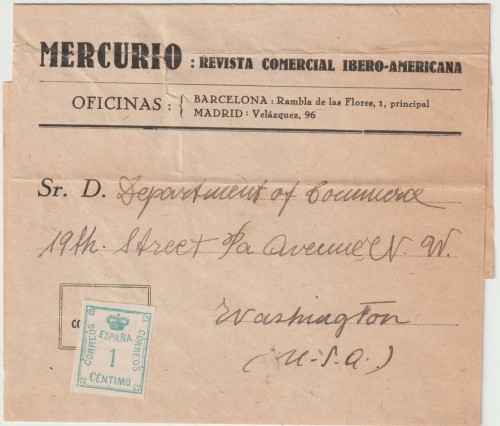 MERCURIO : REVISTA COMERCIAL IBERO-AMERICANA
OFICINAS : { BARCELONA : Rambla de las Flores, 1, principal
MADRID : Velázquez, 96
Sr. D. Department of Commerce
19th. Street Pa avenue N. W.
Washington
(U.S.A.)
CO
CORREOS ESPAÑA CORREOS
1
CÉNTIMO